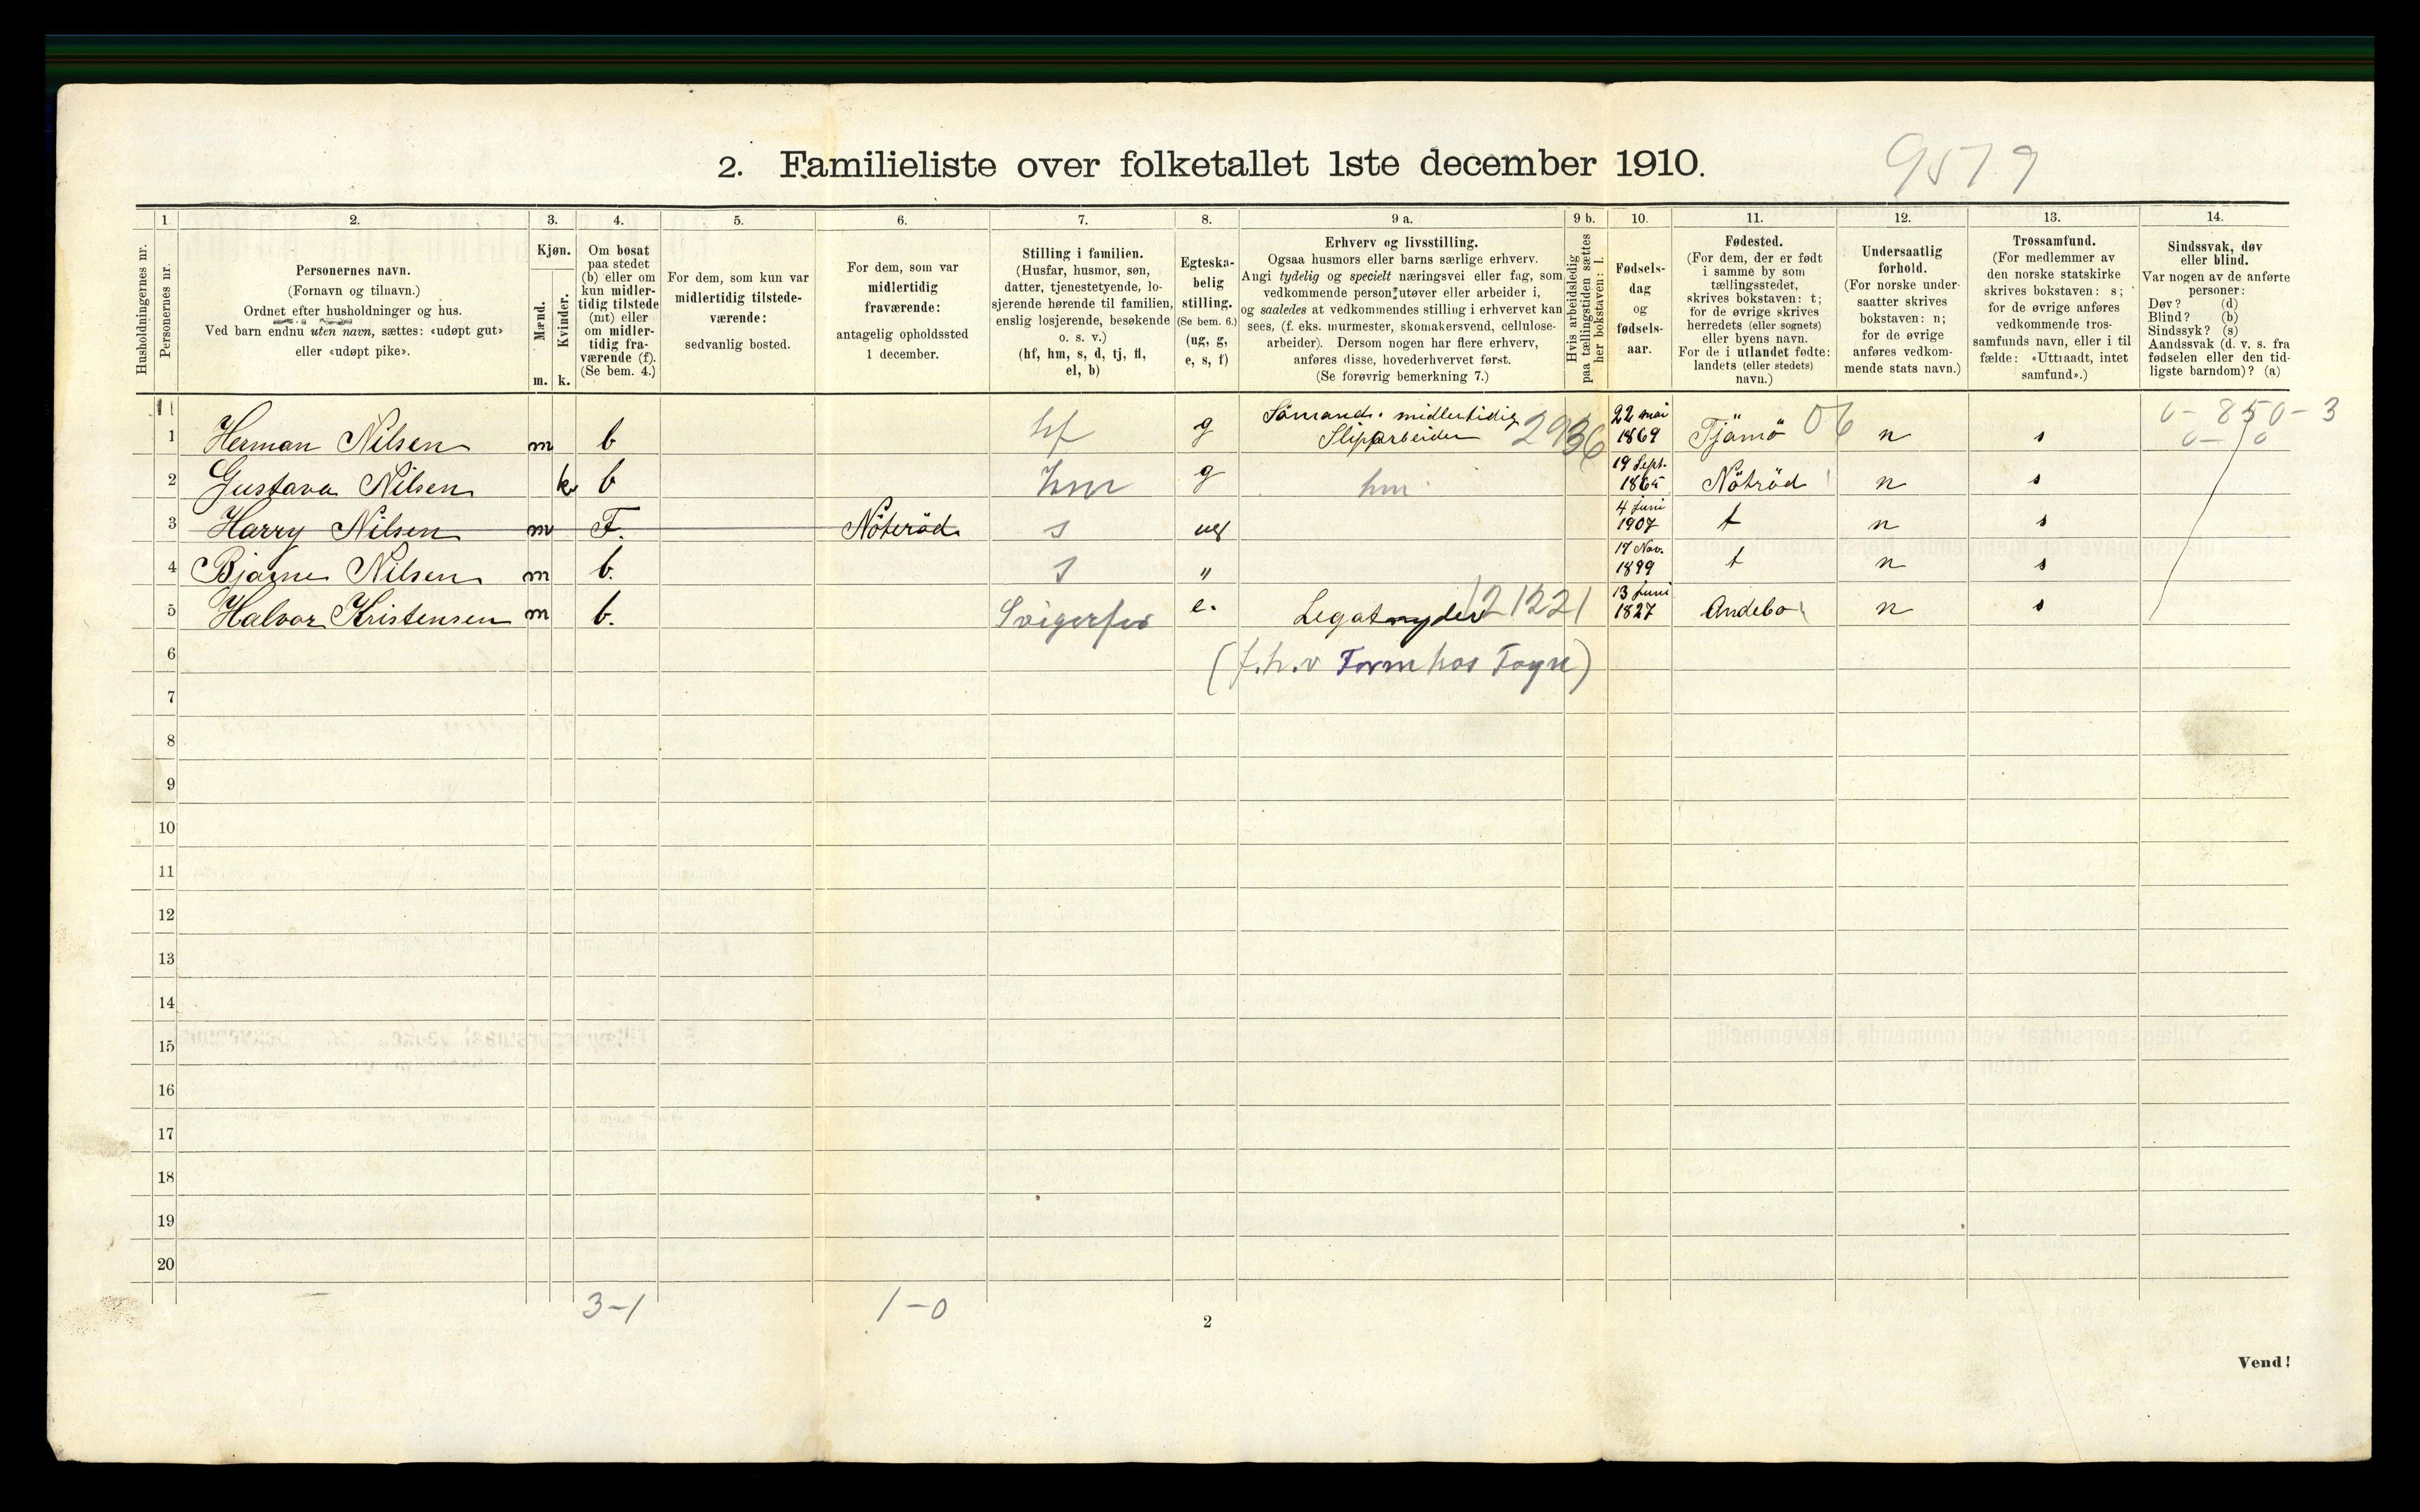 2. Familieliste over folketallet 1ste december 1910.
9579
1. 2. 3. 4. 5. 6. 7. 8. 9 a. 9 b. 10. 11. 12. 13. 14.
Husholdningernes nr.
Personernes nr.
Personernes navn.
(Fornavn og tilnavn.)
Ordnet efter husholdninger og hus.
Ved barn endnu uten navn, sættes: «udøpt gut»
eller «udøpt pike».
Kjøn.
Mænd.
Kvinder.
m. k.
Om bosat
paa stedet
(b) eller om
kun midler-
tidig tilstede
(mt) eller
om midler-
tidig fra-
værende (f).
(Se bem. 4.)
For dem, som kun var
midlertidig tilstede-
værende:
sedvanlig bosted.
For dem, som var
midlertidig
fraværende:
antagelig opholdssted
1 december.
Stilling i familien.
(Husfar, husmor, søn,
datter, tjenestetyende, lo-
sjerende hørende til familien,
enslig losjerende, besøkende
o. s. v.)
(hf, hm, s, d, tj, fl,
el, b)
Egteska-
belig
stilling.
(Se bem. 6.)
(ug, g,
e, s, f)
Erhverv og livsstilling.
Ogsaa husmors eller barns særlige erhverv.
Angi tydelig og specielt næringsvei eller fag, som
vedkommende person utøver eller arbeider i,
og saaledes at vedkommendes stilling i erhvervet kan
sees, (f. eks. murmester, skomakersvend, cellulose-
arbeider). Dersom nogen har flere erhverv,
anføres disse, hovederhvervet først.
(Se forøvrig bemerkning 7.)
Hvis arbeidsledig
paa tællingstiden sættes
her bokstaven: l.
Fødsels-
dag
og
fødsels-
aar.
Fødested.
(For dem, der er født
i samme by som
tællingsstedet,
skrives bokstaven: t;
for de øvrige skrives
herredets (eller sognets)
eller byens navn.
For de i utlandet fødte:
landets (eller stedets)
navn.)
Undersaatlig
forhold.
(For norske under-
saatter skrives
bokstaven: n;
for de øvrige
anføres vedkom-
mende stats navn.)
Trossamfund.
(For medlemmer av
den norske statskirke
skrives bokstaven: s;
for de øvrige anføres
vedkommende tros-
samfunds navn, eller i til
fælde: «Uttraadt, intet
samfund».)
Sindssvak, døv
eller blind.
Var nogen av de anførte
personer:
Døv? (d)
Blind? (b)
Sindssyk? (s)
Aandssvak (d. v. s. fra
fødselen eller den tid-
ligste barndom)? (a)
1 Herman Nilsen m b hf g Sömand. midlertidig Slipparbeider 2936 22 mai 1869 Tjömö 06 n s 0-850-3
0-0
2 Gustava Nilsen k b hm g hm 19 Sept. 1865 Nötröd n s
3 Harry Nilsen m F. Nöteröd. s ug 4 juni 1907 t n s
4 Bjarne Nilsen m b. s " 17 Nov. 1899 t n s
5 Halvor Kristensen m b. Svigerfar e. Legatnyder 121221 13 juni 1827 Andebo n s
6 (f.h.v Tømmhos Togn)
7
8
9
10
11
12
13
14
15
16
17
18
19
20
3-1 1-0
2
Vend!